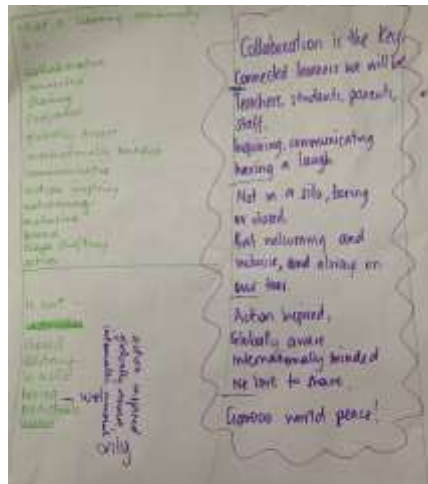 What is learning community
is...
collaborative
connected
sharing
globally aware
internationally minded
communicative
action inspiring
welcoming
inclusive
It isn't
closed
solitary
in a silo
boring
action inspired
globally aware
internationally minded
silly
Collaboration is the Key
Connected learners we will be
Teachers, students, parents,
staff.
Inquiring, communicating
having a laugh
Not in a silo, boring
or closed
But welcoming and
inclusive, and always on
our toes
Action inspired,
Globally aware
Internationally minded
We love to share
world peace!